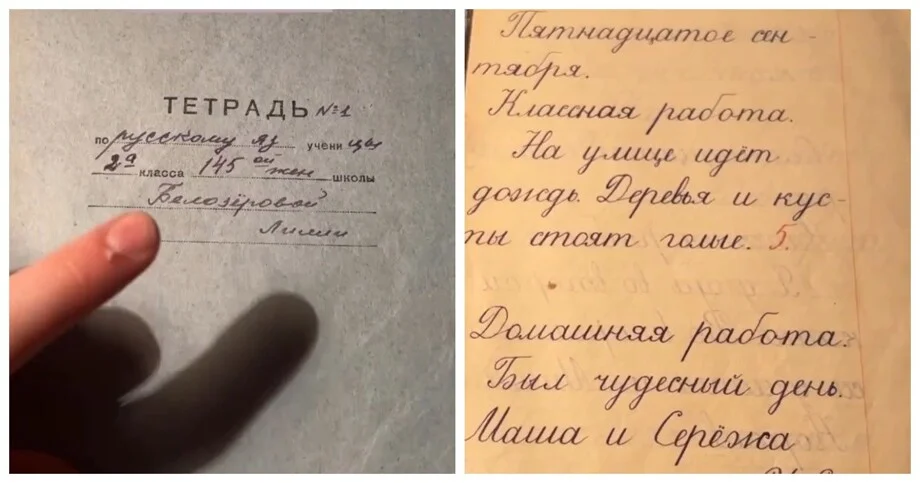 ТЕТРАДЬ №1
по русскому яз учени цы
2а класса 145 ой жен школы
Белозёровой
Лилии
Пятнадцатое сен-
тября.
Классная работа.
На улице идёт
дождь. Деревья и кус-
ты стоят голые. 5.
Домашняя работа.
Был чудесный день.
Маша и Серёжа